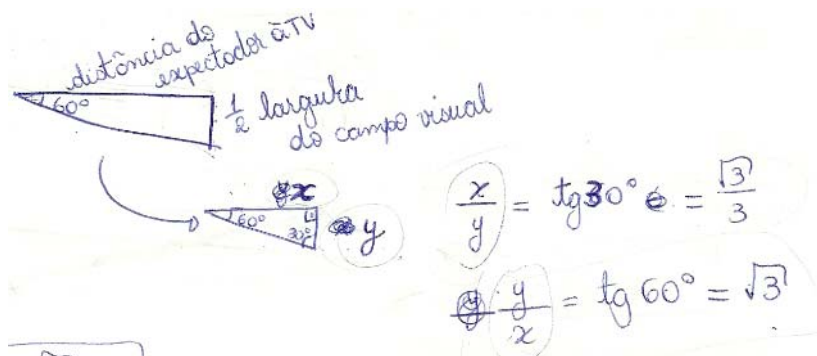 distância do
expectador à TV
60°
1/2 largura
do campo visual
x
60°
30°
y
x/y = tg30° = √3/3
y/x = tg 60° = √3